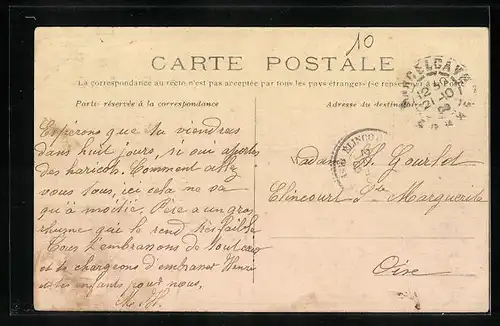 10
CARTE POSTALE
La correspondance au recto n'est pas acceptée par tous les pays étrangers (se rensei
Partie réservée à la correspondance
Adresse du destinataire
MARCELCAVE
ELINCO
Espérons que tu viendras
dans huit jours, si oui apportes
des haricots. Comment allez
vous tous, ici cela ne va
qu'à moitié. Père a un gros
rhume qui le rend très faible.
Tous t'embrassons de tout cœur
et te chargeons d'embrasser Henri
et les enfants pour nous.
M. H.
Madame H. Gourlot
Elincourt Ste Marguerite
Oise